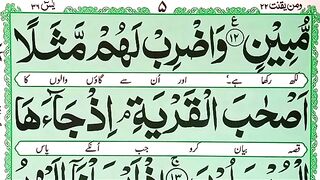 ومن يقنت ٢٢ ۵ يٰسٓ ٣٦
مُّبِيْنٍ ﴿١٢﴾ وَاضْرِبْ لَهُمْ مَّثَلًا
لکھ رکھا ہے؟ اور اُن سے گاؤں والوں کا
اَصْحٰبَ الْقَرْيَةِ ۘ اِذْ جَآءَهَا
قصہ بیان کرو جب اُنکے پاس